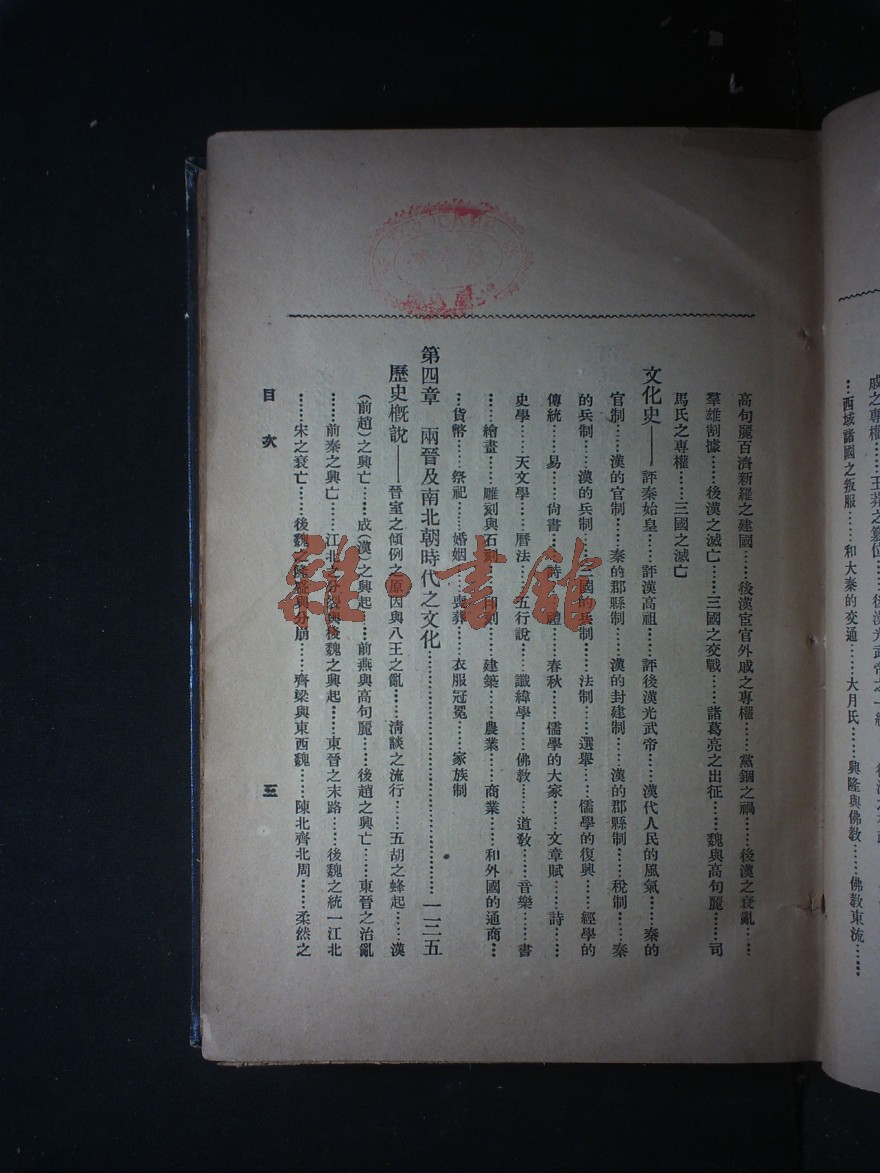 戚之專權……王莽之篡位……後漢光武帝之一統……
…西域諸國之叛服……和大秦的交通……大月氏……興隆與佛教……佛教東流……
高句麗百濟新羅之建國……後漢宦官外戚之專權……黨錮之禍……後漢之衰亂……
羣雄割據……後漢之滅亡……三國之交戰……諸葛亮之出征……魏與高句麗……司
馬氏之專權……三國之滅亡
文化史——評秦始皇……評漢高祖……評後漢光武帝……漢代人民的風氣……秦的
官制……漢的官制……秦的郡縣制……漢的封建制……漢的郡縣制……稅制……秦
的兵制……漢的兵制……三國的兵制……法制……選舉……儒學的復興……經學的
傳統……易……尙書……詩……禮……春秋……儒學的大家……文章賦……詩……
史學……天文學……曆法……五行說……讖緯學……佛教……道敎……音樂……書
……繪畫……雕刻與石刻……印刻……建築……農業……商業……和外國的通商…
…貨幣……祭祀……婚姻……喪葬……衣服冠冕……家族制
第四章 兩晉及南北朝時代之文化……一三五
歷史槪說——晉室之傾例之原因與八王之亂……淸談之流行……五胡之蜂起……漢
(前趙)之興亡……成(漢)之興起……前燕與高句麗……後趙之興亡……東晉之治亂
……前秦之興亡……江北之分裂與後魏之興起……東晉之末路……後魏之統一江北
……宋之衰亡……後魏之隆盛與分崩……齊梁與東西魏……陳北齊北周……柔然之
目次
三
雜·書館